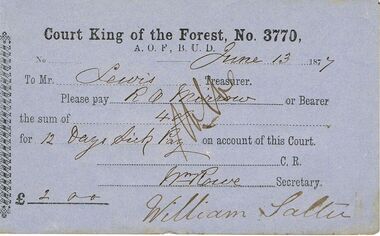 Court King of the Forest, No. 3770,
A. O. F., B. U. D.
No June 13 1877
To Mr. Lewis Treasurer.
Please pay R A or Bearer
the sum of 40/
for 12 Days Sick Pay on account of this Court.
C. R.
Wm Rowe Secretary.
£ 2 00
William Salter